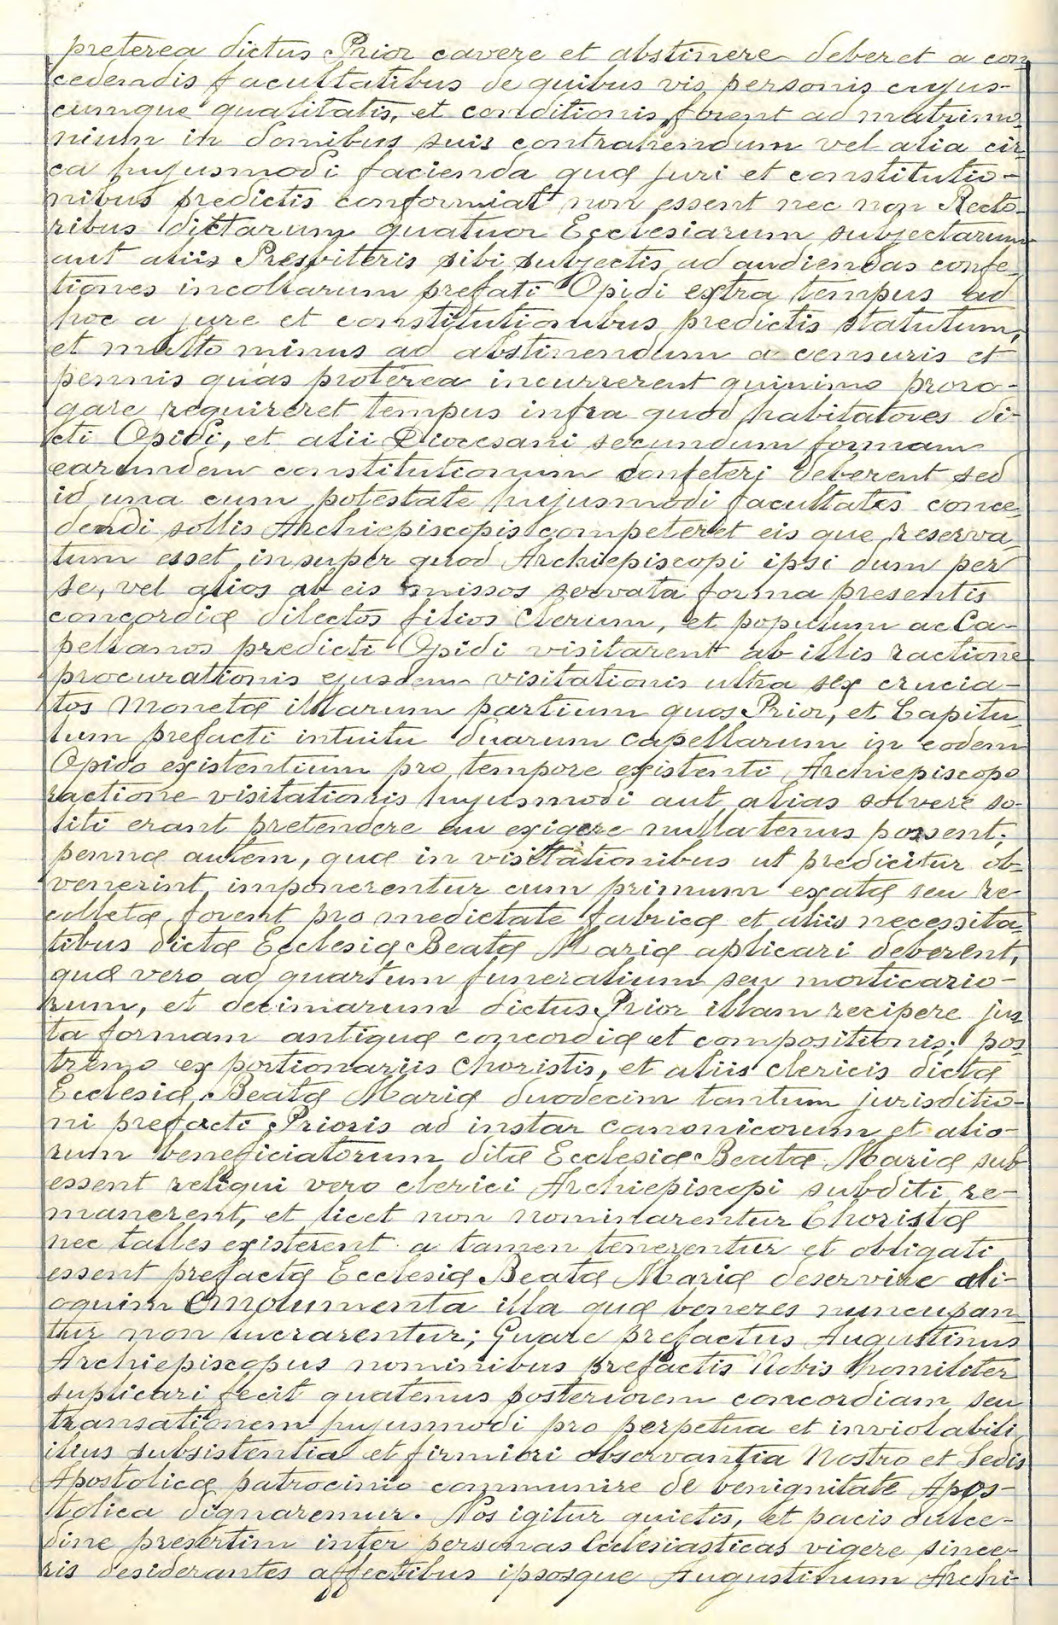 preterea dictus Prior cavere et abstinere deberet a con
cedendis facultatibus de quibus vis personis cujus-
cumque qualitatis, et conditionis forent ad matrimo
nium in domibus suis contrahendum vel alia cir
ca hujusmodi facienda quæ juri et constitutio-
nibus predictis conformiat non essent nec non Recto
ribus dictarum quatuor Ecclesiarum subjectarum
aut aliis Presviteris sibi subjectis ad audiendas confe
tiones incolarum prefati Opidi extra tempus ad
hoc a jure et constitutionibus predictis statutum,
et multo minus ad abstinendum a censuris et
pennis quas proterea incurrerent quinimo proro-
gare requireret tempus infra quod habitatores di-
cti Opidi, et alii Diocesani secundum formam
earumdem constitutionum confeteri deberent sed
id una cum potestate hujusmodi facultates conce
dendi sollis Archiepiscopis competeret eis que reserva
tum esset, insuper quod Archiepiscopi ipsi dum per
se, vel alios ab eis missos servata forma presentis
concordiæ dilectos filios Clerum, et populum ac Ca-
pellanos predicti Opidi visitarent ab illis ractione
procurationis ejusdem visitationis ultra sex crucia-
tos Monetæ illarum partium quos Prior, et Capitu
lum prefacti intuitu duarum capellarum in eodem
Opido existentium pro tempore existenti Archiepiscopo
ractione visitationis hujusmodi aut alias solvere so-
liti erant pretendere au exigere nullatenus possent;
pennæ autem, quæ in visitationibus ut predicitur ob-
venerint, imponerentur cum primum exatæ seu re
colletæ, forent pro medietate fabricæ et aliis necessita
tibus dictæ Ecclesiæ Beatæ Mariæ aplicari deberent,
quæ vero ad quartum funeralium seu morticario-
rum, et decimarum dictus Prior illam recipere jus
ta formam antiquæ concordiæ et compositionis; pos
tremo ex portionariis Choristis, et aliis clericis dictæ
Ecclesiæ, Beatæ Mariæ duodecim tantum jurisditio-
ni prefacti Prioris ad instar canonicorum et alio-
rum beneficiatorum ditæ Ecclesiæ Beatæ Mariæ sub
essent reliqui vero clerici Archiepiscopi subditi re-
manerent, et licet non nominarentur Choristæ
nec talles existerent a tamen tenerentur et obligati
essent prefactæ Ecclesiæ Beatæ Mariæ deservire ali-
oquim Emolumenta illa quæ beneres nuncupan
tur non lucrarentur; Quare prefactus Augustinus
Archiepiscopus nominibus prefactis Nobis homiliter
suplicari fecit quatenus posteriorem concordiam seu
transationem hujusmodi pro perpetua et inviolabili
ilius subsistentia et firmiori observantia Nostro et Sedis
Apostolicæ patrocinio communire de venignitate Apos-
tolica dignaremur. Nos igitur quietis, et pacis dulce-
dine presertim inter personas Eclesiasticas vigere since-
ris desiderantes affectibus ipsosque Augustinum Archi-